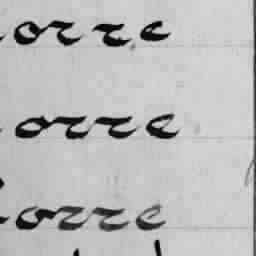 orre
orre
orre